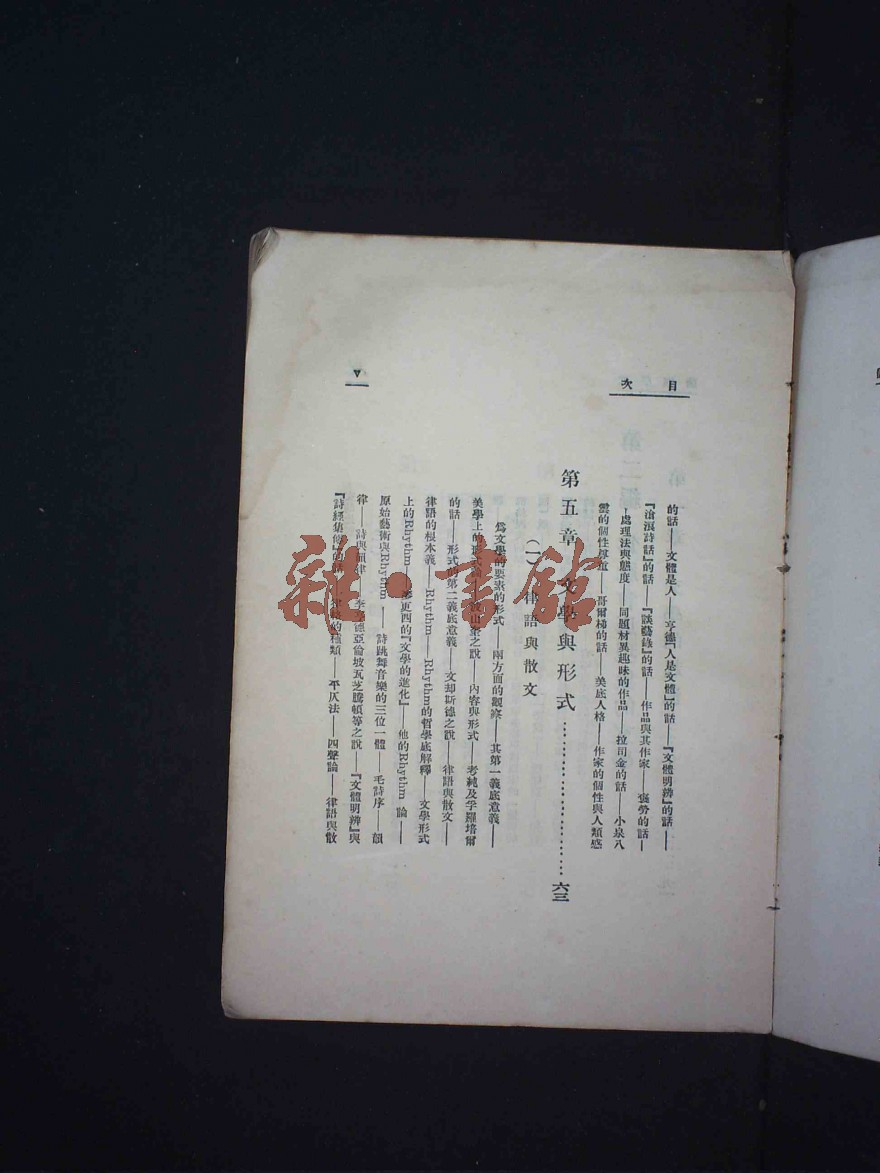 目次
的話——文體是人——亨德「人是文體」的話——『文體明辨』的話——
『滄浪詩話』的話——『談藝錄』的話——作品與其作家——褒勞的話—
—處理法與態度——同題材異趣味的作品——拉司金的話——小泉八
雲的個性尊重——哥爾梯的話——美底人格——作家的個性與人類感
第五章 文學與形式……………………六三
(一) 律語與散文
——爲文學的要素的形式——兩方面的觀察——其第一義底意義——
美學上的形式 山泰之說——內容與形式——考純及孚羅培爾
的話——形式的第二義底意義——文却斯德之說——律語與散文——
律語的根本義——Rhythm——Rhythm的哲學底解釋——文學形式
上的Rhythm 更西的『文學的進化』——他的Rhythm 論——
原始藝術與Rhythm——詩跳舞音樂的三位一體——毛詩序——韻
律——詩與韻律——李 德亞倫坡瓦芝騰頓等之說——『文體明辨』與
『詩經集傳』的話——律 的種類——平仄法——四聲論——律語與散
V
雜·書館